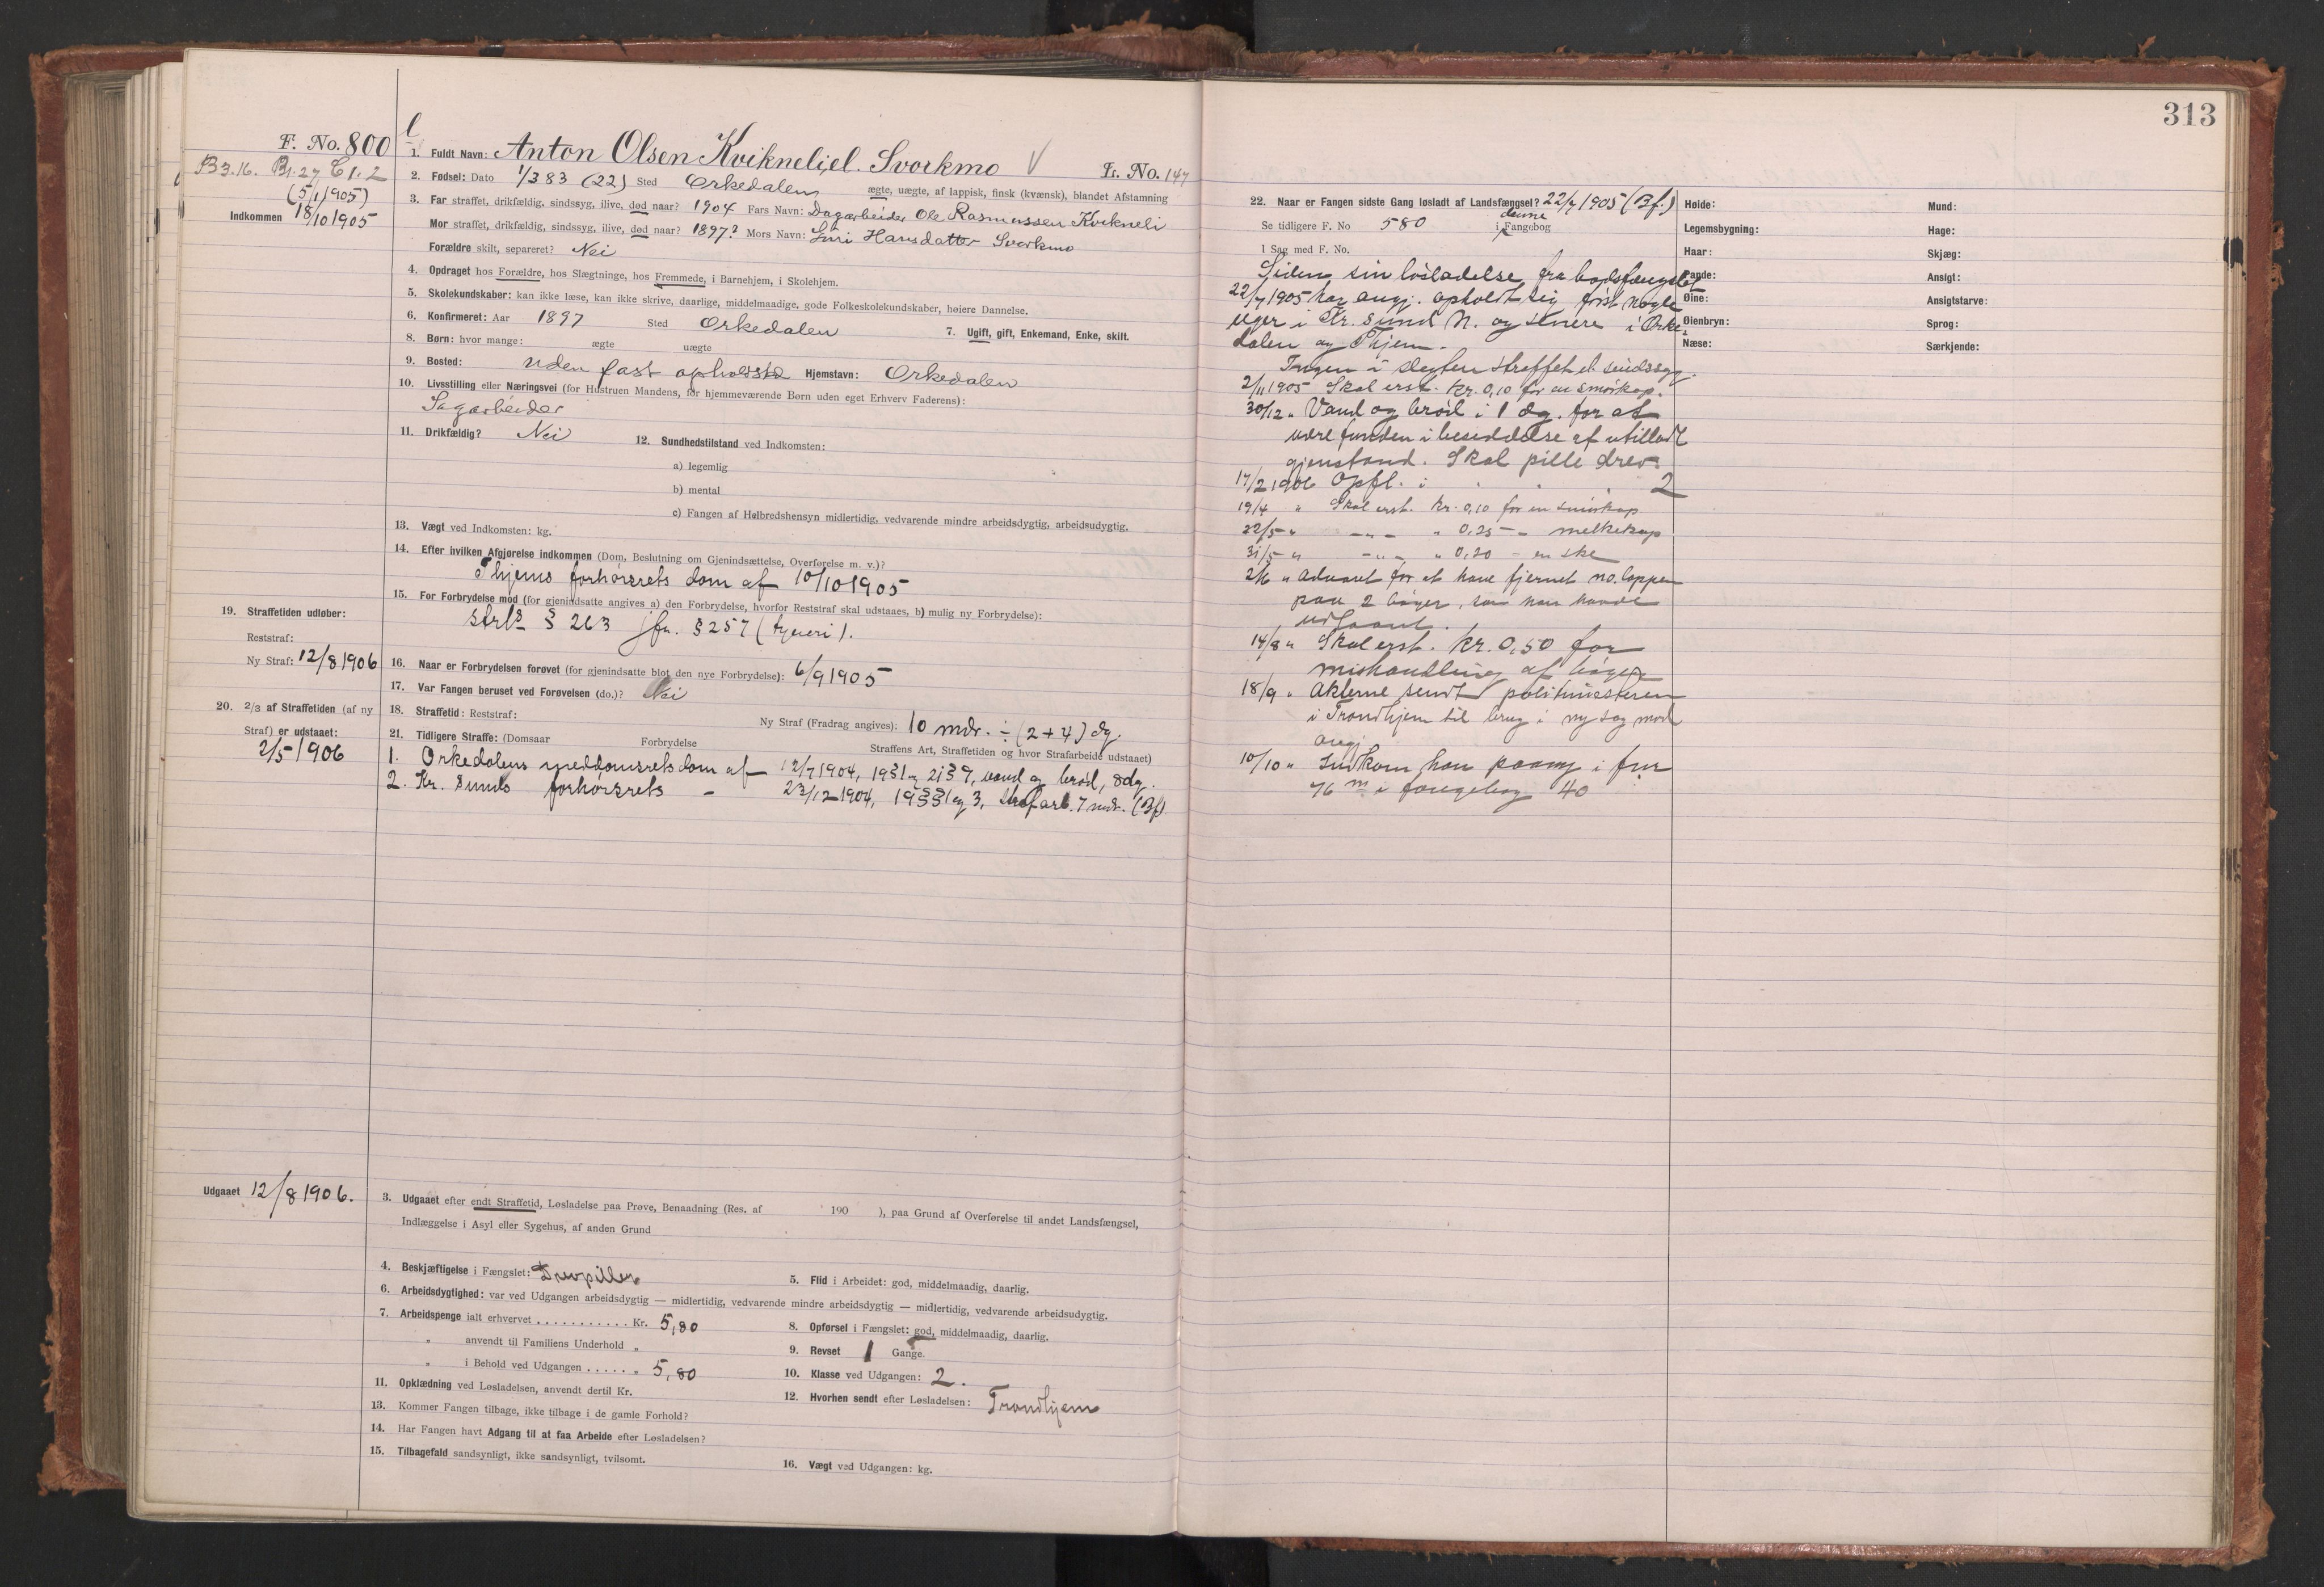 F. No. 800
B 3.16. B1.27 C 1.2
(5/1 1905)
Indkommen 18/10 1905
l
1. Fuldt Navn: Anton Olsen Kviknelid el. Svorkmo V Fr. No. 147
2. Fødsel: Dato 1/3 83 (22) Sted Orkedalen ægte, uægte, af lappisk, finsk (kvænsk), blandet Afstamning
3. Far straffet, drikfældig, sindssyg, ilive, død naar? 1904 Fars Navn: Dagarbeider Ole Rasmussen Kvikneli
Mor straffet, drikfældig, sindssyg, ilive, død naar? 1897? Mors Navn: Guri Hansdatter Svorkmo
Forældre skilt, separeret? Nei
4. Opdraget hos Forældre, hos Slægtninge, hos Fremmede, i Barnehjem, i Skolehjem.
5. Skolekundskaber: kan ikke læse, kan ikke skrive, daarlige, middelmaadige, gode Folkeskolekundskaber, høiere Dannelse.
6. Konfirmeret: Aar 1897 Sted Orkedalen 7. Ugift, gift, Enkemand, Enke, skilt.
8. Børn: hvor mange: ægte uægte
9. Bosted: uden fast opholdssted Hjemstavn: Orkedalen
10. Livsstilling eller Næringsvei (for Hustruen Mandens, for hjemmeværende Børn uden eget Erhverv Faderens):
Sagarbeider
11. Drikfældig? Nei 12. Sundhedstilstand ved Indkomsten:
a) legemlig
b) mental
c) Fangen af Helbredshensyn midlertidig, vedvarende mindre arbeidsdygtig, arbeidsudygtig.
13. Vægt ved Indkomsten: kg.
14. Efter hvilken Afgjørelse indkommen (Dom, Beslutning om Gjenindsættelse, Overførelse m. v.)?
Thjems forhørsrets dom af 10/10 1905
15. For Forbrydelse mod (for gjenindsatte angives a) den Forbrydelse, hvorfor Reststraf skal udstaaes, b) mulig ny Forbrydelse):
strls § 263 jfr. § 257 (tyveri).
19. Straffetiden udløber:
Reststraf:
Ny Straf: 12/8 1906
16. Naar er Forbrydelsen forøvet (for gjenindsatte blot den nye Forbrydelse): 6/9 1905
17. Var Fangen beruset ved Forøvelsen (do.)? Nei
20. 2/3 af Straffetiden (af ny
Straf) er udstaaet:
2/5 1906
18. Straffetid: Reststraf: Ny Straf (Fradrag angives): 10 mdr. ÷ (2+4) dg.
21. Tidligere Straffe: (Domsaar Forbrydelse Straffens Art, Straffetiden og hvor Strafarbeide udstaaet)
1. Orkedalens meddomsrets dom af 12/7 1904, 19 § 1 og 21 § 9, vand og brød, 8 dg.
2. Kr. Sunds forhørsrets – 23/12 1904, 19 §§ 1 og 3, strafarb. 7 mdr. (Bf)
Udgaaet 12/8 1906.
3. Udgaaet efter endt Straffetid, Løsladelse paa Prøve, Benaadning (Res. af 190 ), paa Grund af Overførelse til andet Landsfængsel,
Indlæggelse i Asyl eller Sygehus, af anden Grund
4. Beskjæftigelse i Fængslet: Drevpiller 5. Flid i Arbeidet: god, middelmaadig, daarlig.
6. Arbeidsdygtighed: var ved Udgangen arbeidsdygtig — midlertidig, vedvarende mindre arbeidsdygtig — midlertidig, vedvarende arbeidsudygtig.
7. Arbeidspenge ialt erhvervet . . . . . . . . . . . Kr. 5,80 8. Opførsel i Fængslet: god, middelmaadig, daarlig.
„ anvendt til Familiens Underhold „ 9. Revset 1 Gange.
„ i Behold ved Udgangen . . . . . . „ 5,80 10. Klasse ved Udgangen: 2.
11. Opklædning ved Løsladelsen, anvendt dertil Kr. 12. Hvorhen sendt efter Løsladelsen: Trondhjem
13. Kommer Fangen tilbage, ikke tilbage i de gamle Forhold?
14. Har Fangen havt Adgang til at faa Arbeide efter Løsladelsen?
15. Tilbagefald sandsynligt, ikke sandsynligt, tvilsomt. 16. Vægt ved Udgangen: kg.
313
22. Naar er Fangen sidste Gang løsladt af Landsfængsel? 22/7 1905 (Bf.)
Se tidligere F. No 580 i denne Fangebog
I Sag med F. No.
Siden sin løsladelse fra bodsfængslet
22/7 1905 har angj. opholdt sig først nogle
uger i Kr. sund N. og senere i Orke-
dalen og Thjem.
Ingen i slegten straffet el. sindssyg.
2/11 1905 Skal erst. kr. 0,10 for en smørkop.
30/12 „ Vand og brød i 1 dg. for at
være funden i besiddelse af utilladt
gjenstand. Skal pille drev.
17/2 1906 Opfl. i . . . 2
19/4 „ Skal erst. kr. 0,10 for en smørkop
22/5 „ –„– „ 0,25 – melkekop
31/5 „ –„– „ 0,20 – en ske
2/6 „ Advaret for at have fjernet no. lappen
paa 2 bøger, som han havde
udlaant.
14/8 „ Skal erst. kr. 0,50 for
mishandling af bøger
18/9 „ Akterne sendt politimesteren
i Trondhjem til brug i ny sag mod
angj.
10/10 „ Indkom han paany i fnr
76 i fangebog 40
Høide:
Legemsbygning:
Haar:
Pande:
Øine:
Øienbryn:
Næse:
Mund:
Hage:
Skjæg:
Ansigt:
Ansigtstarve:
Sprog:
Særkjende: